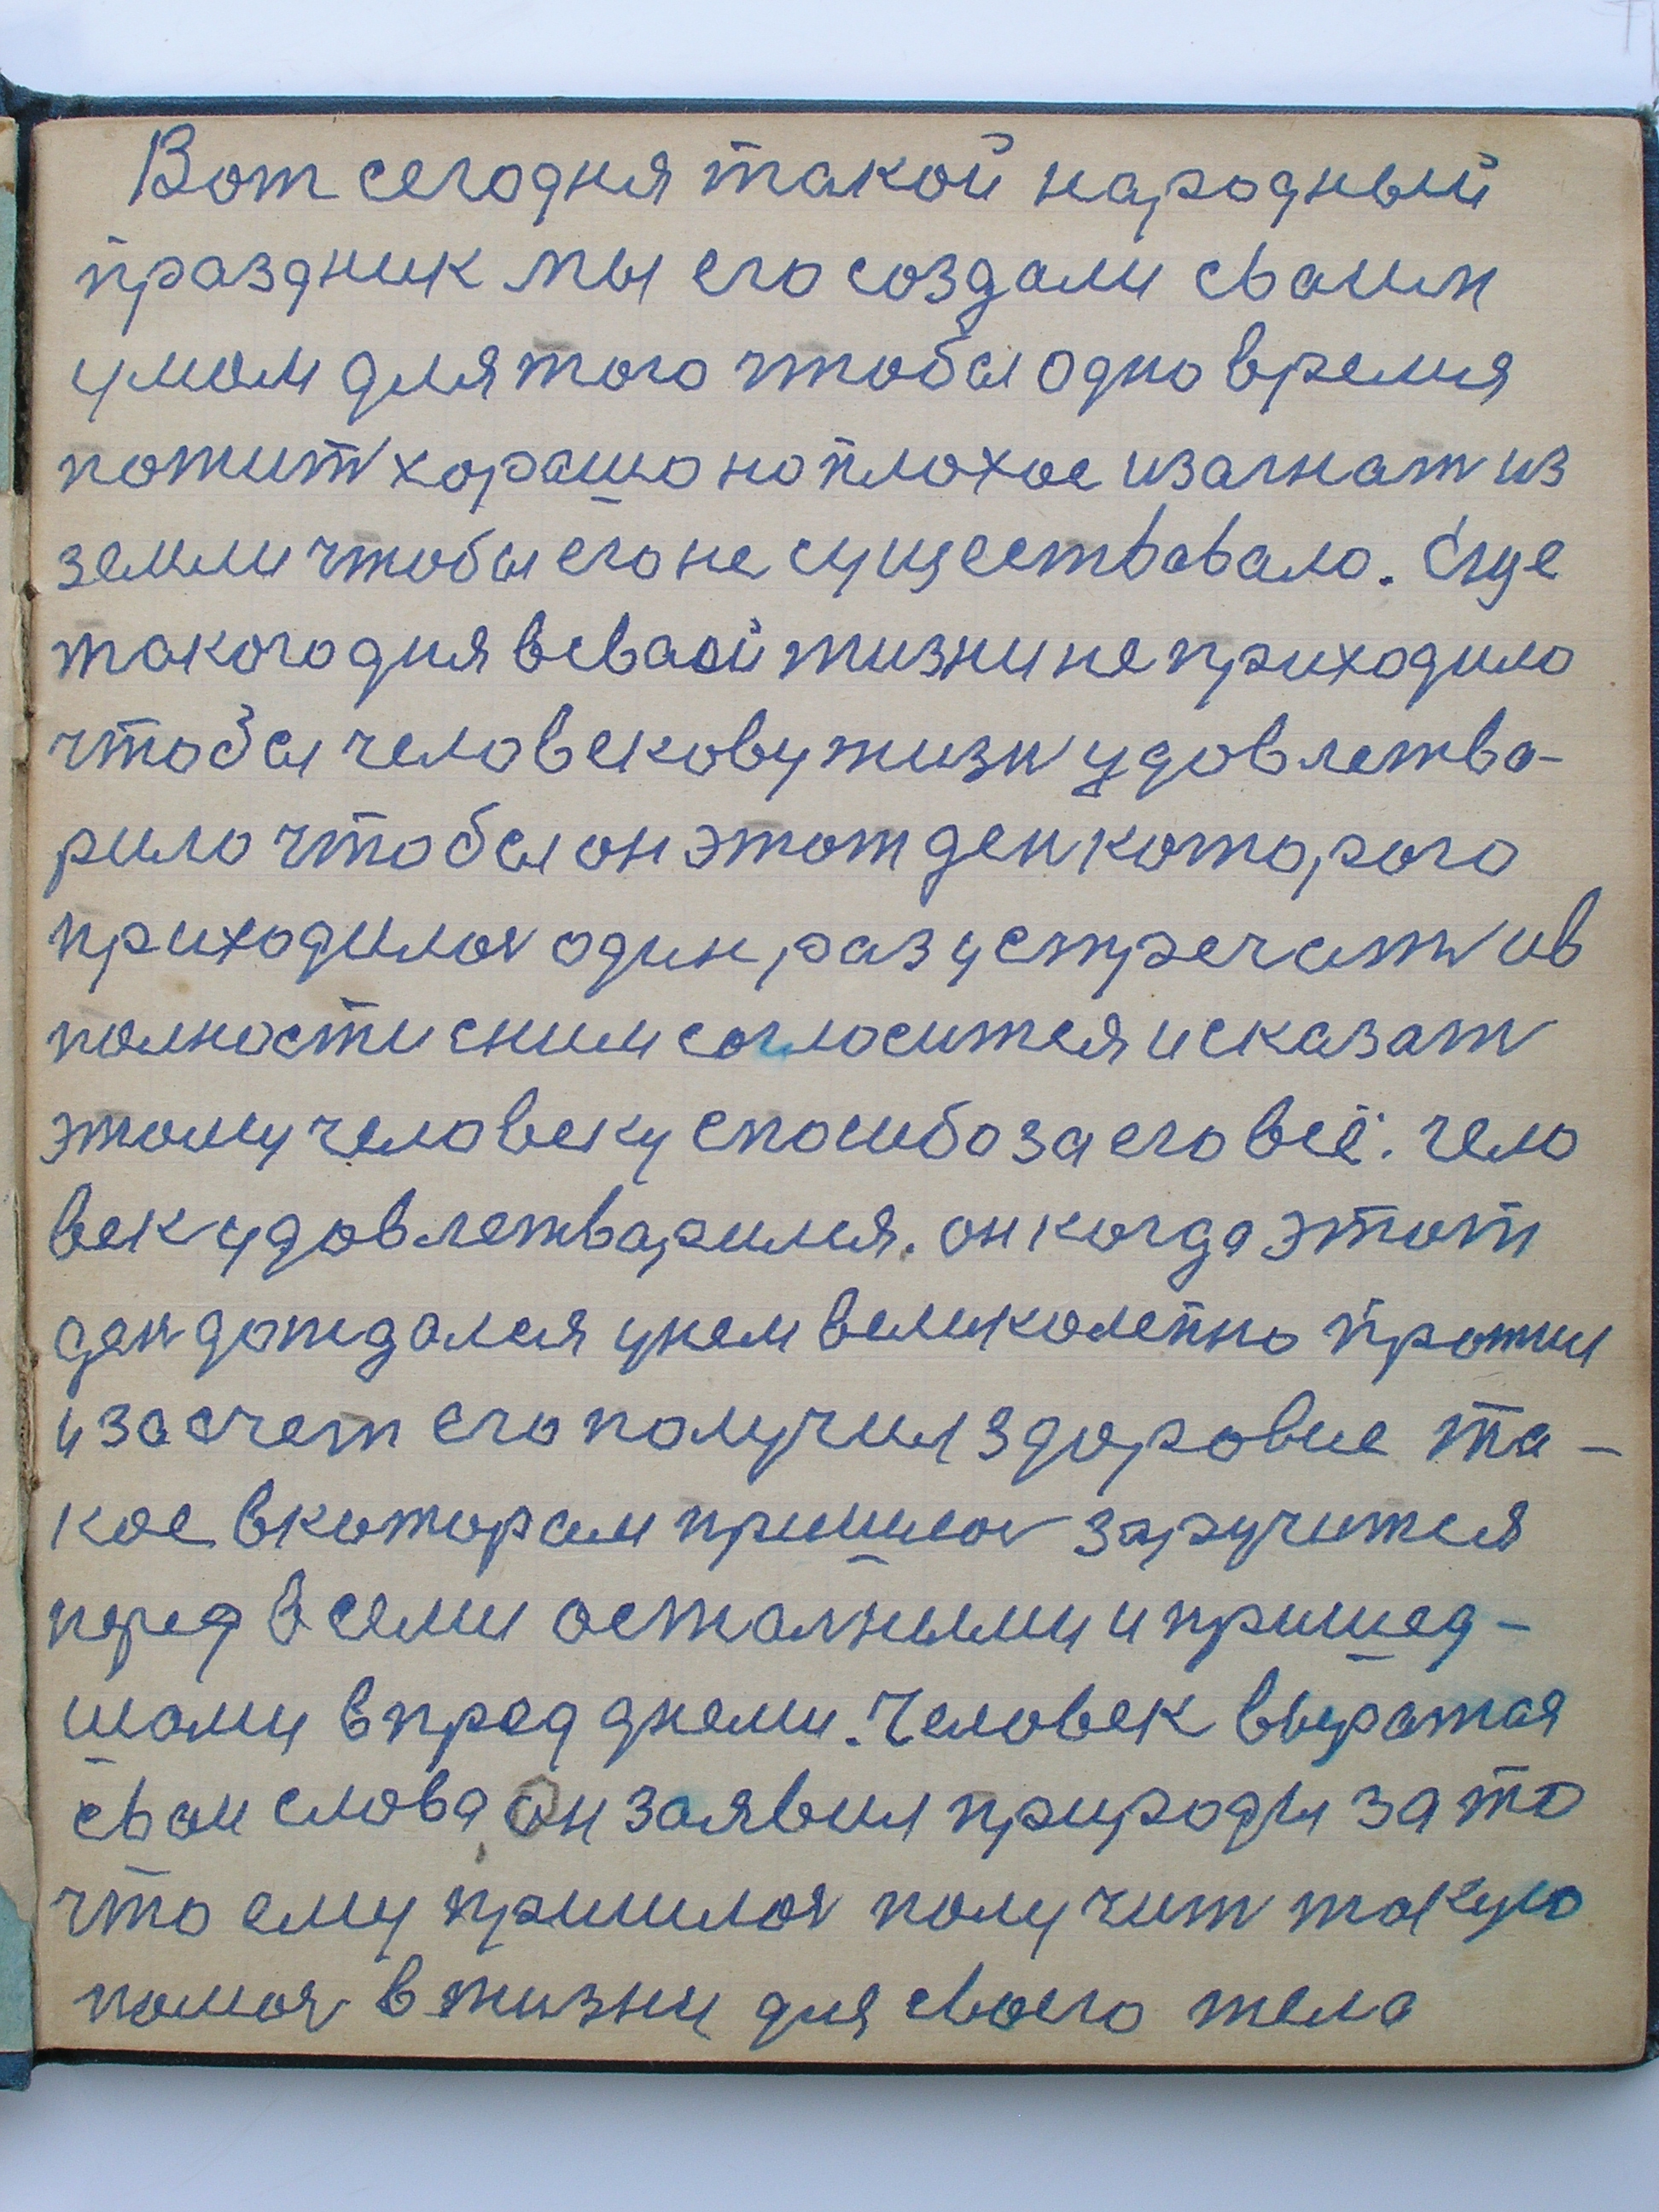 Вот сегодня такой народный
праздник мы его создали сваим
умом для того чтобы одно время
пожит хорошо но плохое изагнат из
земли чтобы его не существовало. Еще
такого дня в сваей жизни не приходило
чтобы человекову жизн удовлетва-
рило чтобы он этот ден которого
приходилос один раз устречат ив
полности сним согласится и сказат
этому человеку спасибо за его всё. чело
век удовлетварился. он когда этот
ден дождался унем великолепно прожил
и за счет его получил здоровие та-
кое вкоторам пришлос заручится
перед всеми осталными и пришед-
шами впред днеми. Человек выражая
сваи слова он заявил природы за то
что ему пришлос получит такую
помоч в жизни для своего тела